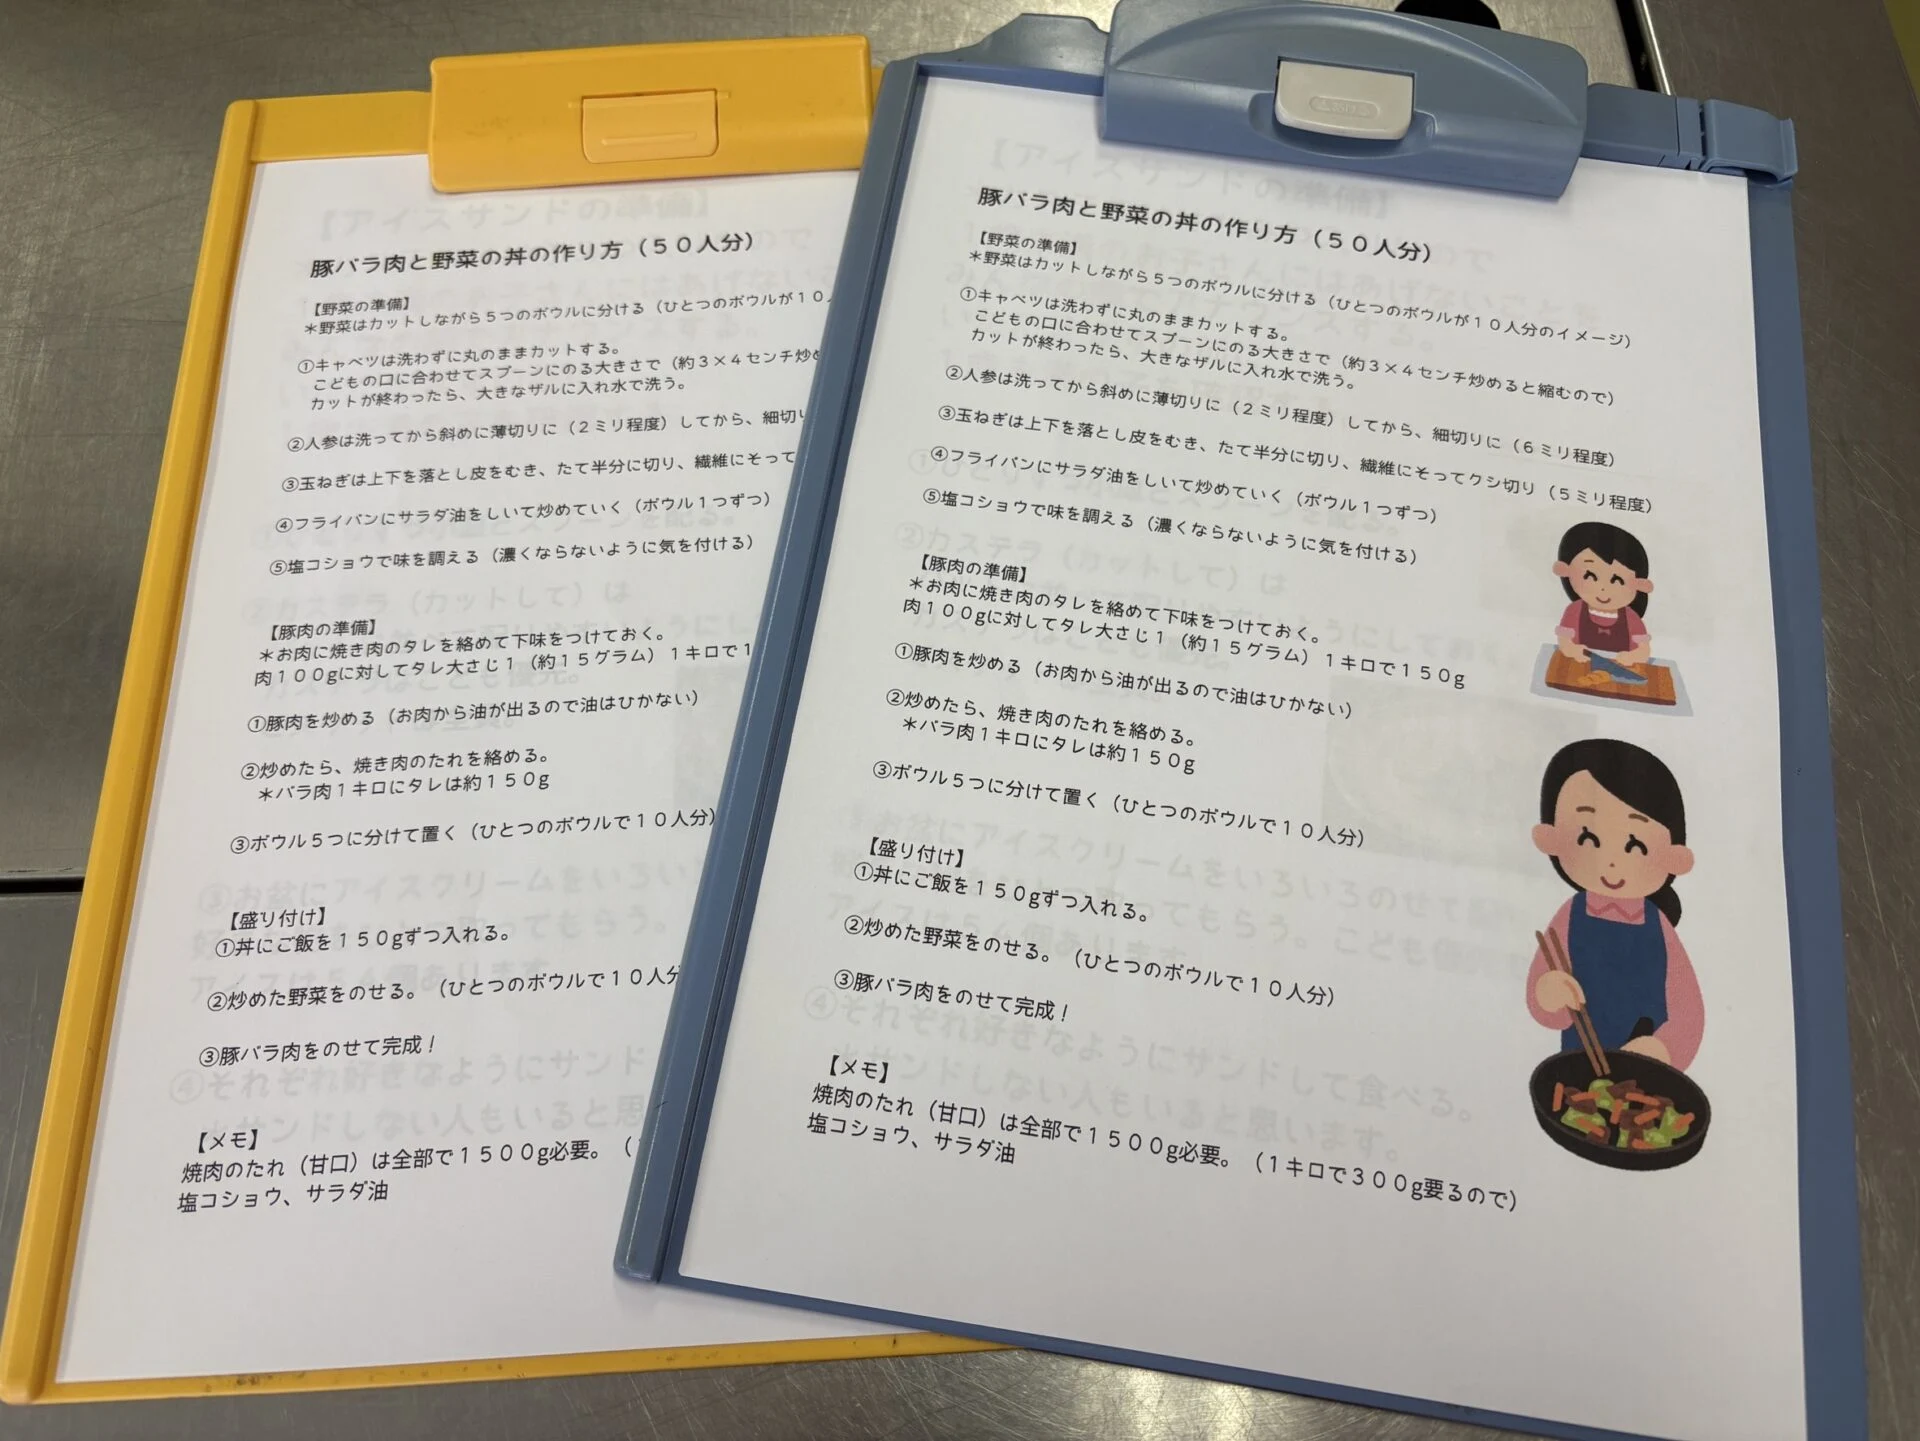 豚バラ肉と野菜の丼の作り方（５０人分）
【野菜の準備】
＊野菜はカットしながら５つのボウルに分ける（ひとつのボウルが１０
①キャベツは洗わずに丸のままカットする。
こどもの口に合わせてスプーンにのる大きさで（約３×４センチ炒め
カットが終わったら、大きなザルに入れ水で洗う。
②人参は洗ってから斜めに薄切りに（２ミリ程度）してから、細切り
③玉ねぎは上下を落とし皮をむき、たて半分に切り、繊維にそって
④フライパンにサラダ油をしいて炒めていく（ボウル１つずつ）
⑤塩コショウで味を調える（濃くならないように気を付ける）
【豚肉の準備】
＊お肉に焼き肉のタレを絡めて下味をつけておく。
肉１００gに対してタレ大さじ１（約１５グラム）１キロで１
①豚肉を炒める（お肉から油が出るので油はひかない）
②炒めたら、焼き肉のたれを絡める。
＊バラ肉１キロにタレは約１５０g
③ボウル５つに分けて置く（ひとつのボウルで１０人分）
【盛り付け】
①丼にご飯を１５０gずつ入れる。
②炒めた野菜をのせる。（ひとつのボウルで１０人分
③豚バラ肉をのせて完成！
【メモ】
焼肉のたれ（甘口）は全部で１５００g必要。（
塩コショウ、サラダ油
豚バラ肉と野菜の丼の作り方（５０人分）
【野菜の準備】
＊野菜はカットしながら５つのボウルに分ける（ひとつのボウルが１０人分のイメージ）
①キャベツは洗わずに丸のままカットする。
こどもの口に合わせてスプーンにのる大きさで（約３×４センチ炒めると縮むので）
カットが終わったら、大きなザルに入れ水で洗う。
②人参は洗ってから斜めに薄切りに（２ミリ程度）してから、細切りに（６ミリ程度）
③玉ねぎは上下を落とし皮をむき、たて半分に切り、繊維にそってクシ切り（５ミリ程度）
④フライパンにサラダ油をしいて炒めていく（ボウル１つずつ）
⑤塩コショウで味を調える（濃くならないように気を付ける）
【豚肉の準備】
＊お肉に焼き肉のタレを絡めて下味をつけておく。
肉１００gに対してタレ大さじ１（約１５グラム）１キロで１５０g
①豚肉を炒める（お肉から油が出るので油はひかない）
②炒めたら、焼き肉のたれを絡める。
＊バラ肉１キロにタレは約１５０g
③ボウル５つに分けて置く（ひとつのボウルで１０人分）
【盛り付け】
①丼にご飯を１５０gずつ入れる。
②炒めた野菜をのせる。（ひとつのボウルで１０人分）
③豚バラ肉をのせて完成！
【メモ】
焼肉のたれ（甘口）は全部で１５００g必要。（１キロで３００g要るので）
塩コショウ、サラダ油